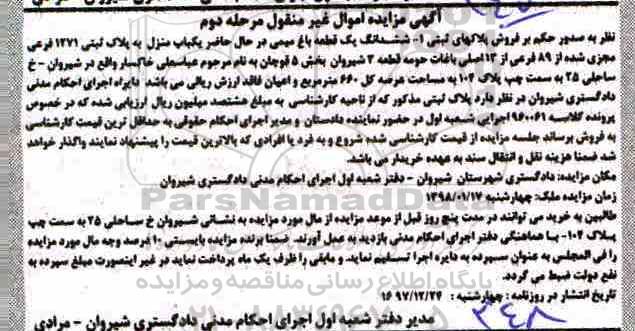 آگهی مزایده اموال غیر منقول مرحله دوم
نظر به صدور حکم بر فروش پلاکهای ثبتی ۱- ششدانگ یک قطعه باغ میمی در حال حاضر یکباب منزل به پلاک ثبتی ۱۲۷۱ فرعی
مجزی شده از ۸۹ فرعی از ۱۳ اصلی باغات حومه قطعه ۳ شیروان بخش ۵ قوچان به نام مرحوم عباسعلی خاکسار واقع در شیروان - خ
ساحلی ۲۵ به سمت چپ پلاک ۱۰۴ به مساحت عرصه کل ۶۶۰ مترمربع و اعیان فاقد ارزش ریالی می باشد دایراه اجرای احکام مدنی
دادگستری شیروان در نظر دارد پلاک ثبتی مذکور که از ناحیه کارشناسی به مبلغ هشتصد میلیون ریال ارزیابی شده که در خصوص
پرونده کلاسه ۹۶۰۰۶۱ اجرایی شعبه اول در حضور نماینده دادستان و مدیر اجرای احکام حقوقی به حداقل ترین قیمت کارشناسی
به فروش برساند جلسه مزایده از قیمت کارشناسی شده شروع و به فرد یا افرادی که بالاترین قیمت را پیشنهاد نمایند واگذار خواهد
شد ضمنا هزینه نقل و انتقال سند به عهده خریدار می باشد.
مکان مزایده: دادگستری شهرستان شیروان - دفتر شعبه اول اجرای احکام مدنی دادگستری شیروان
زمان مزایده ملک: چهارشنبه ۱۳۹۸/۰۱/۱۷
طالبین به خرید می توانند در مدت پنج روز قبل از موعد مزایده از مال مورد مزایده به نشانی شیروان خ ساحلی ۲۵ به سمت چپ
پلاک ۱۰۴- با هماهنگی دفتر اجرای احکام مدنی بازدید به عمل آورند. ضمنا برنده مزایده بایستی ۱۰ درصد وجه مال مورد مزایده
را فی المجلس به عنوان سپرده به دایره اجرا تسلیم نماید و مابقی را ظرف یک ماه پرداخت نماید در غیر اینصورت مبلغ سپرده به
نفع دولت ضبط می گردد.
تاریخ انتشار در روزنامه: چهارشنبه: ۹۷/۱۲/۲۴ ۱۶
مدیر دفتر شعبه اول اجرای احکام مدنی دادگستری شیروان - مرادی
۳۴۸
ParsNamadData
پایگاه اطلاع رسانی مناقصه و مزایده